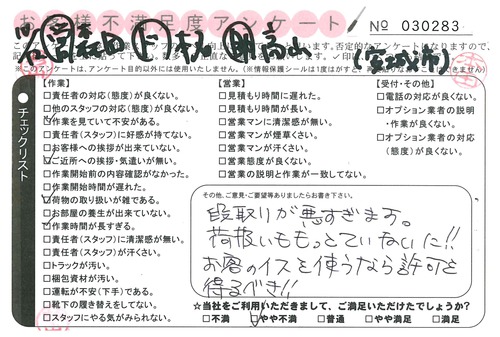 お客様不満足度アンケート
No 030283
(宮城・市)
このアンケートは、
※このアンケートは、アンケート目的以外には使用いたしません。(※情報保護シールは1度はがすと、
チェックリスト
【作業】
□責任者の対応(態度)が良くない。
□他のスタッフの対応(態度)が良くない。
□作業を見ていて不安がある。
□責任者(スタッフ)に好感が持てない。
□お客様への挨拶が出来ていない。
□ご近所への挨拶・気遣いが無い。
□作業開始前の内容確認がなかった。
□作業開始時間が遅れた。
□荷物の取り扱いが雑である。
□お部屋の養生が出来ていない。
□作業時間が長すぎる。
□責任者(スタッフ)に清潔感が無い。
□責任者(スタッフ)が汗くさい。
□トラックが汚い。
□梱包資材が汚い。
□運転が不安(下手)である。
□靴下の履き替えをしてない。
□スタッフにやる気がみられない。
【営業】
□見積もり時間に遅れた。
□見積もり時間が長い。
□営業マンに清潔感が無い。
□営業マンが煙草くさい。
□営業マンが汗くさい。
□営業態度が良くない。
□営業の説明と作業が一致してない。
【受付・その他】
□電話の対応が良くない。
□オプション業者の説明
・作業が良くない。
□オプション業者の対応
(態度)が良くない。
その他、ご意見・ご要望等ありましたらお書き下さい。
段取りが悪すぎます。
荷扱いももっとていねいに!!
お客のイスを使うなら許可を
得るべき!!
★当社をご利用いただきまして、ご満足いただけたでしょうか?
□不満 □やや不満 □普通 □やや満足 □満足